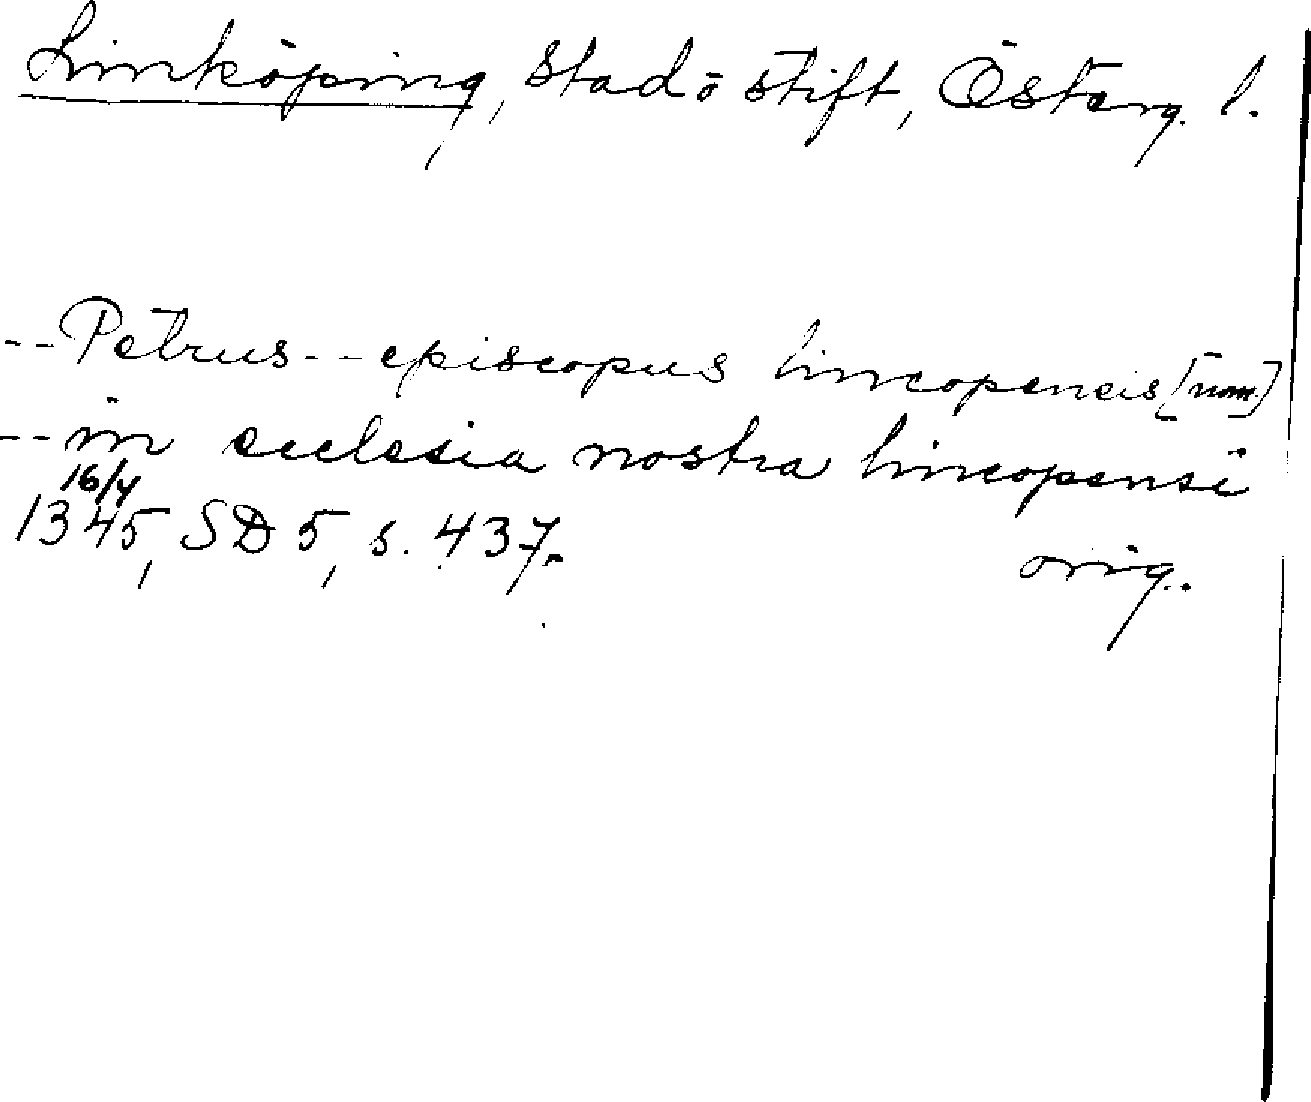 Linköping, stad o stift, Österg. l.
--Petrus--episcopus lincopencis [nom.]
--in ecclesia nostra lincopensi
16/4
1345, SD 5, s. 437. orig.